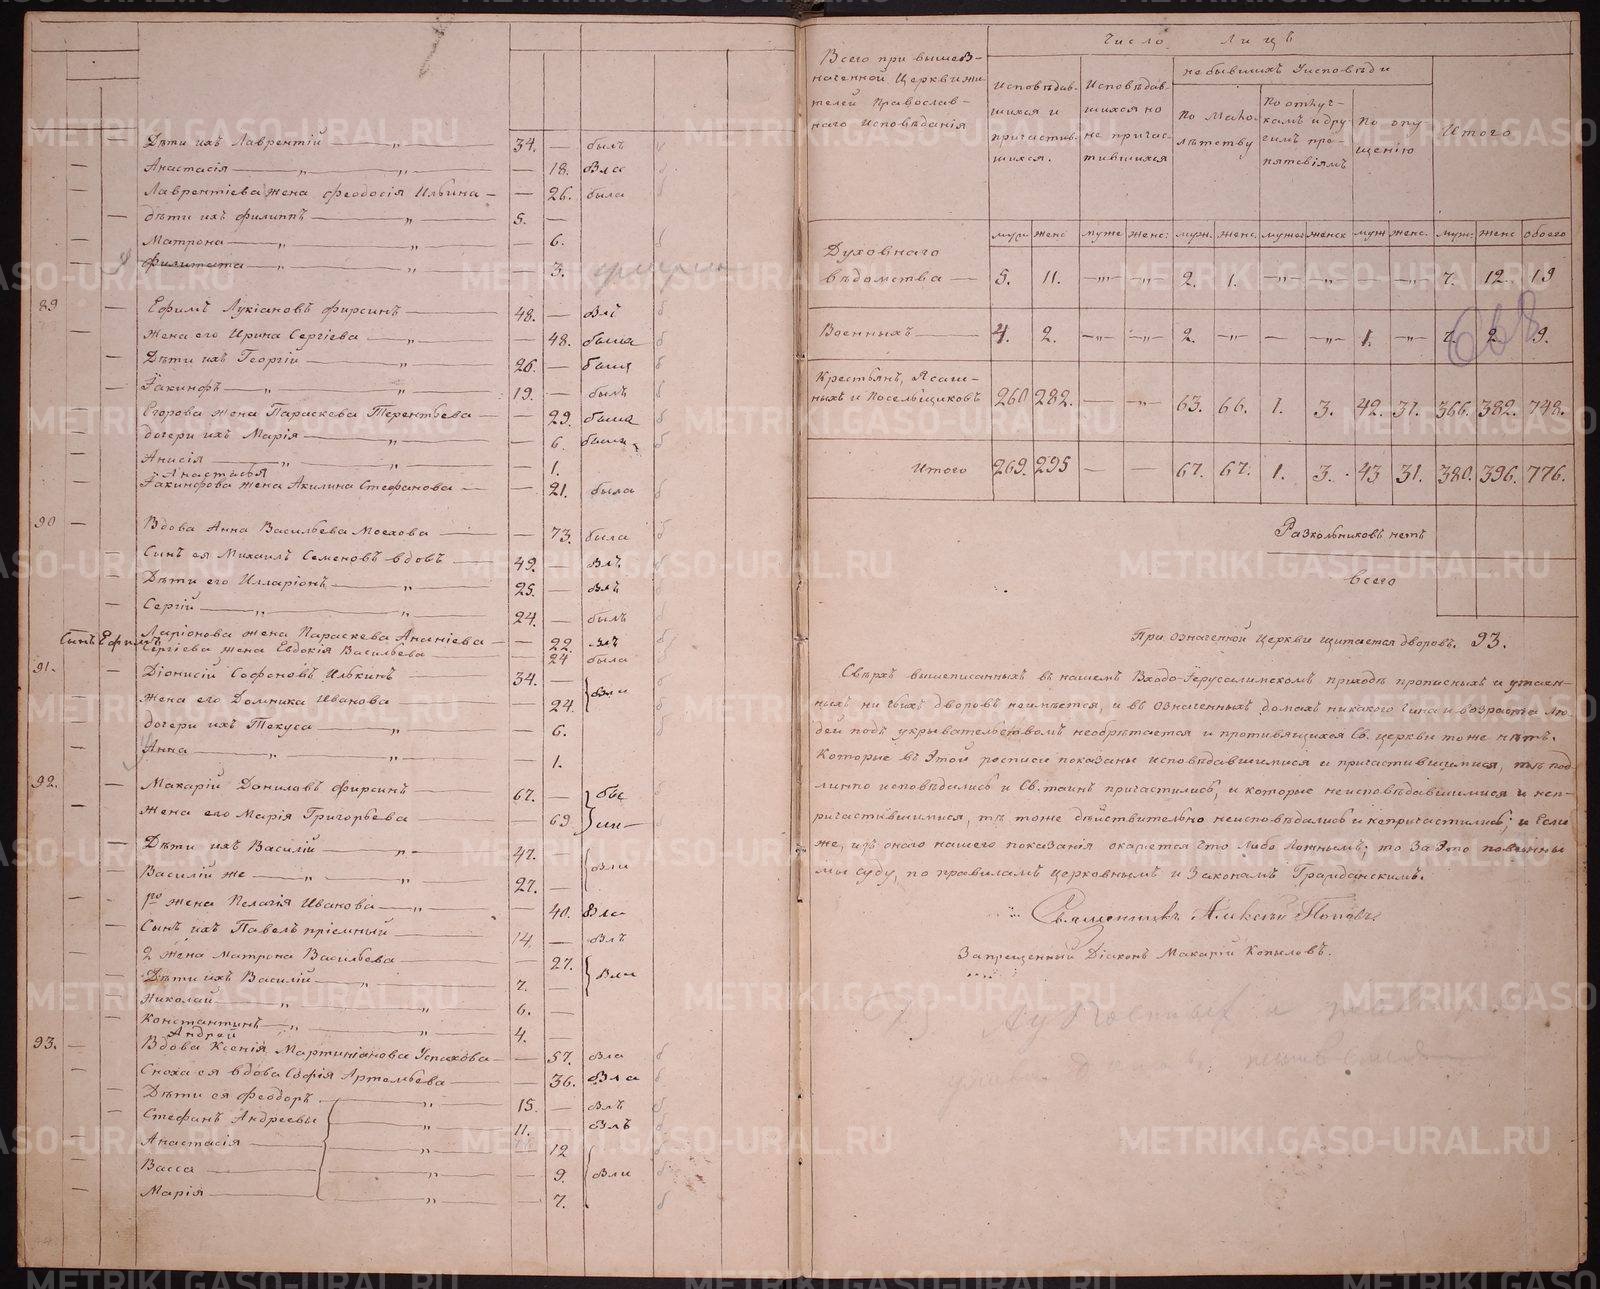 Дѣти ихъ Лаврентій — „ — 34. — былъ
Анастасія — „ — „ — — 18. Бла
Лаврентіева жена Феодосія Ильина — — 26. была
— дѣти ихъ Филиппъ — „ — 5. —
— Матрона — „ „ — 6.
— Филитата — „ „ — 3.
89 — Ефимъ Лукіановъ Фирсинъ — 48. — Блъ
— Жена его Ирина Сергіева — „ — — 48. была
— Дѣти ихъ Георгій — „ — 26. —
— Іакинфъ — „ „ — 19. — былъ
— Егорова жена Параскева Терентьева — — 29. была
— дочери ихъ Марія — „ — — 6
— Анисія — „ „ — — 1.
Анастасья
— Іакинфова жена Акилина Стефанова — — 21. была
90 — Вдова Анна Васильева Мохова — — 73. была
— Сынъ ея Михаилъ Семеновъ вдовъ — 49. — Блъ
— Дѣти его Илларіонъ — „ — 25. — Блъ
— Сергій — „ „ — 24. — былъ
— Ларіонова жена Параскева Ананіева — — 22.
Сынъ Ефимъ Сергіева жена Евдокія Васильева — — 24 была
91. — Діонисій Софоновъ Илькинъ — 34. —
— Жена его Домника Иванова — — 24. Бли
— дочери ихъ Текуса — „ — — 6.
— Анна — „ „ — — 1.
92. — Макарій Даниловъ Фирсинъ — 67. —
— Жена его Марія Григорьева — — 69.
— Дѣти ихъ Василій — „ — 47. —
— Василій же — „ „ — 27. — Бли
— 1я жена Пелагія Иванова — „ — — 40. Бла
— Сынъ ихъ Павелъ пріемный — 14. — Блъ
— 2 жена Матрона Васильева — — 27.
— Дѣти ихъ Василій — „ — 7. — Бли
— Николай — „ — 6. —
— Константинъ — „ „ — 4. —
Андрей
93. — Вдова Ксенія Мартиніанова — — 57. Бла
— Сноха ея вдова Софія Артемьева — — 36. Бла
— Дѣти ея Феодоръ — „ — 15. — Блъ
— Стефанъ Андреевы — „ — 11. — Блъ
— Анастасія — „ — — 12
— Васса — „ — — 9. Бли
— Марія — „ — — 7.
Всего при вышеоз-
наченной Церкви жи-
телей Православ-
наго Исповѣданія
Число Лицъ
Исповѣдав-
шихся и
причастив-
шихся.
Исповѣдав-
шихся но
не причас-
тившихся
не бывшихъ Уисповѣди
По Мало-
лѣтству
По отлуч-
камъ и дру-
гимъ пре-
пятствіямъ
По опу-
щенію
Итого
муж женс муже женс: муж. женс. мужес женск муж женс. муж: женс обоего
Духовнаго
вѣдомства — 5. 11. —„— —„— 2. 1. —„— —„— — —„— 7. 12. 19
Военныхъ — 4. 2. —„— —„— 2. —„— — —„— 1. —„— 7. 2 9.
Крестьянъ, Ясаш-
ныхъ и Посельщиковъ 260 282. — —„— 63. 66. 1. 3. 42. 31. 366. 382. 748.
Итого 269. 295 — — 67. 67. 1. 3. 43 31. 380. 396. 776.
Разкольниковъ нетъ
Всего
При означенной Церкви щитается дворовъ. 93.
Свѣрхъ вышеписанныхъ въ нашемъ Входо-Іерусалимскомъ приходѣ прописныхъ и утаен-
ныхъ ни чьихъ дворовъ неимѣется, и въ означенныхъ домахъ никакого чина и возраста лю-
дей подъ укрывательствомъ необрѣтается и противящихся Св. церкви тоже нѣтъ.
Которые въ Этой росписи показаны исповѣдавшимися и причастившимися, тѣ под-
линно исповѣдались и Св. таинъ причастились, и которые неисповѣдавшимися и неп-
ричастившимися, тѣ тоже дѣйствительно неисповѣдались и непричастились; и Если
же, изъ онаго нашего показанія окажется Что либо ложнымъ; то За Это повинны
мы суду, по правиламъ церковнымъ и Законамъ Гражданскимъ.
Священникъ Алексій Поповъ
Запрещенный Діаконъ Макарій Копыловъ.
METRIKI.GASO-URAL.RU